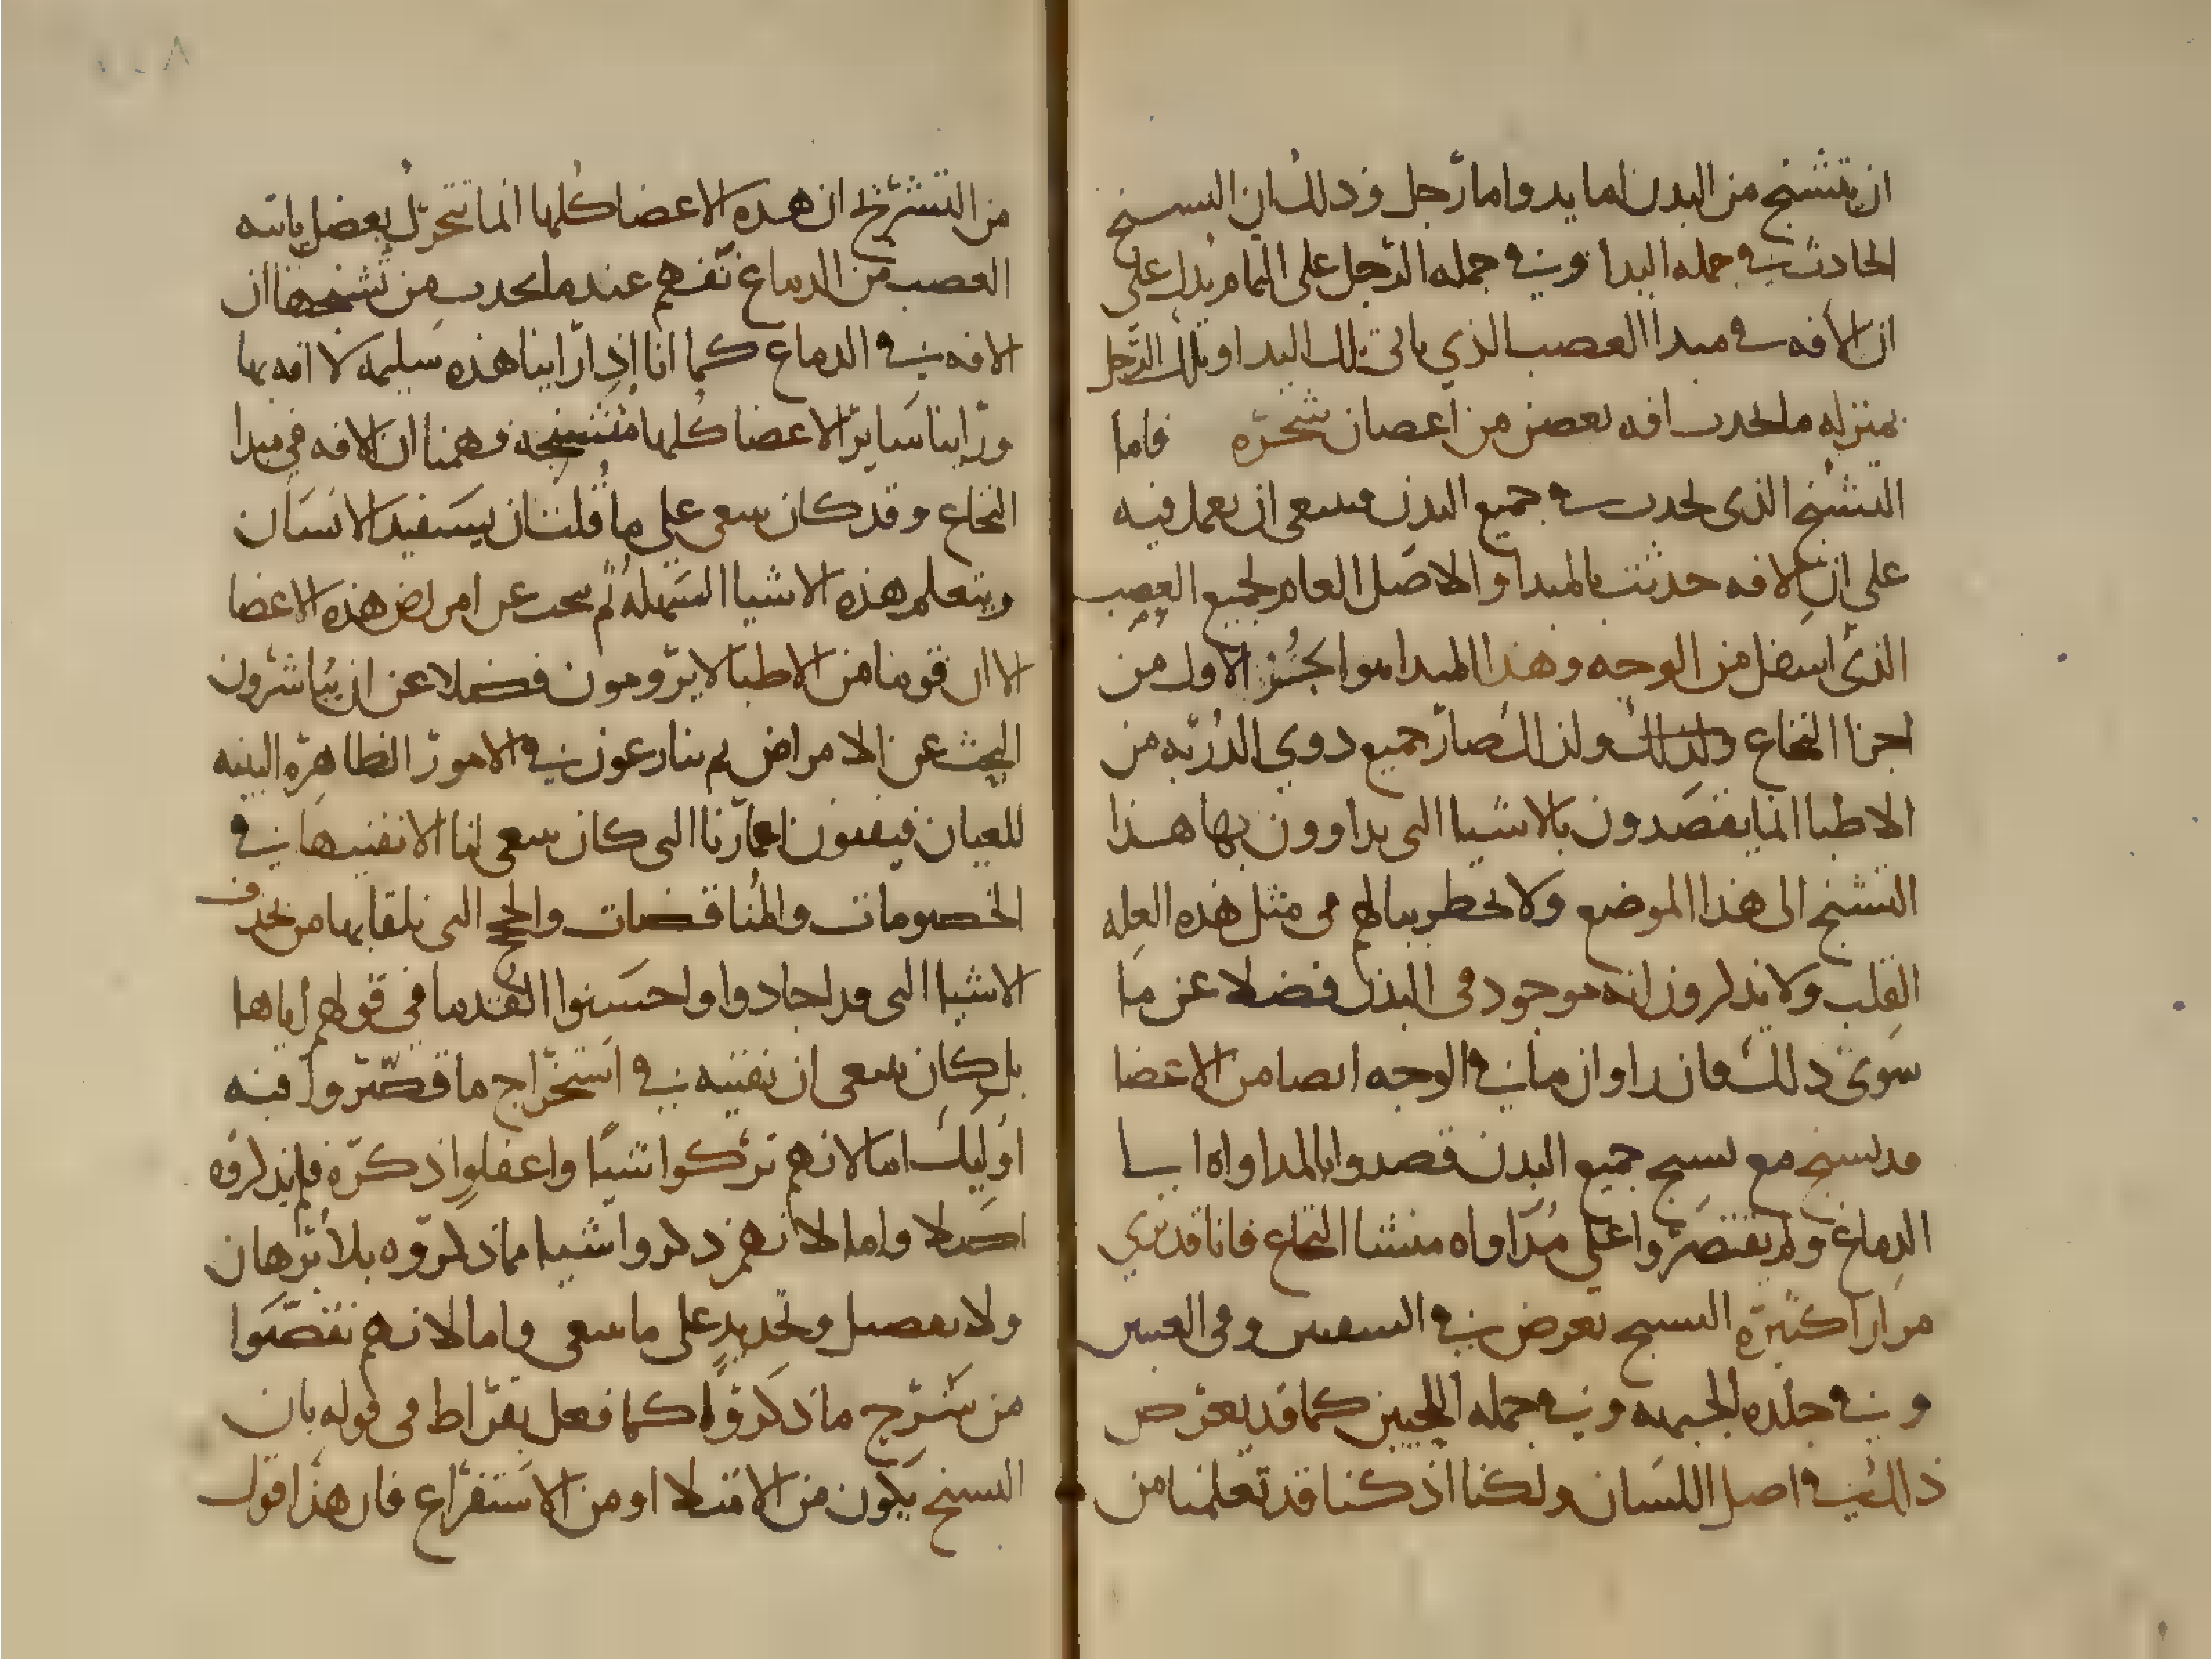 ان يتشنج من البدن اما يد واما رجل وذلك ان التشنج
الحادث في جمله اليد او في جمله الرجل على التمام يدل على
ان الافه في مبدا العصب الذي ياتي تلك اليد او تلك الرجل
بمنزله ما يحدث افه بعض من اغصان شجره فاما
التشنج الذي يحدث في جميع البدن فينبغي ان يعمل فيه
على ان الافه حدثت بالمبدا والاصل العام لجميع العصب
الذي اسفل من الوجه وهذا المبدا هو الجزء الاول من
اجزا النخاع ولذلك ولذلك صار جميع ذوي الدربه من
الاطبا انما يقصدون بالاشيا التي يداوون بها هذا
التشنج الى هذا الموضع ولا يخطر ببالهم في مثل هذه العله
القلب ولا يذكرون انه موجود في البدن فضلا عن ما
سوى ذلك فان راو ان ما في الوجه ايضا من الاعضا
قد تشنج مع تشنج جميع البدن قصدوا بالمداواه ايضا
الدماغ ولم يقتصروا على مداواه منشا النخاع فانا قد نري
مرارا كثيره التشنج يعرض في الشفتين وفي العينين
وفي جلده الجبهه وفي جمله اللحيين كما قد يعرض
ذلك في اصل اللسان ولكنا اذ كنا قد تعلمنا من
من التشريح ان هذه الاعضا كلها انما تتحرك بعضل ياتيه
العصب من الدماغ تفهم عند ما يحدث من تشنجها ان
الافه في الدماغ كما انا اذا راينا هذه سليمه لا افه بها
وراينا ساير الاعضا كلها متشنجه فهمنا ان الافه في مبدا
النخاع وقد كان ينبغي علي ما قلت ان يستفيد الانسان
ويتعلم هذه الاشيا السهله ثم يبحث عن امراض هذه الاعضا
الا ان قوما من الاطبا لا يرومون فضلا عن ان يباشرون
البحث عن الامراض ثم ينازعون في الامور الظاهره البينه
للعيان فيفنون اعمارنا التي كان ينبغي لنا الا نفنيها في
الخصومات والمناقضات والحجج التي نلقا بها من يحذف
الاشيا التي قد اجادوا واحسنوا القدما في قولهم اياها
بل كان ينبغي ان نفنيه في استخراج ما قصروا فيه
اوليك اما لانهم تركوا شيا واغفلوا ذكره فلم يذكروه
اصلا واما لانهم ذكروا شيا مما ذكروه بلا برهان
ولا تفصيل وتحديد على ما ينبغي واما لانهم نقصوا
من شرح ما ذكروا كما فعل بقراط في قوله بان
التشنج يكون من الامتلا او من الاستفراغ فان هذا قول